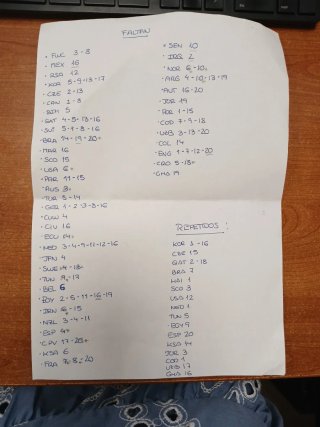 FALTAN
· FWC 3 - 8
· MEX 16
· RSA 12
· KOR 8 - 9 - 13 - 17
· CZE 2 - 13
· CAN 1 - 8
BIH 5
· QAT 4 - 5 - 13 - 16
· SUI 5 - 7 - 8 - 16
BRA 14 - 19 - 20
· MAR 16
· SCO 15
· USA 6
· PAR 11 - 15
· AUS 8
· TUR 9 - 14
· GER 1 - 2 - 7 - 8 - 16
· CUW 4
· CIV 16
ECU 14
· NED 3 - 4 - 9 - 11 - 12 - 16
· JPN 4
· SWE 14 - 18
· TUN 9 - 17
· BEL 6
· EGY 2 - 5 - 11 - 16 - 19
· IRN 6 - 15
· NZL 3 - 4 - 11
· ESP 4
· CPV 17 - 20
· KSA 6
· FRA 20
· SEN 10
· IRQ 2
· NOR 6 - 10
· ARG 4 - 10 - 13 - 19
· AUT 16 - 20
· JOR 19
· POR 1 - 15
· COD 7 - 9 - 18
· UZB 3 - 13 - 20
· COL 14
· ENG 1 - 7 - 12 - 20
· CRO 5 - 13
· GHA 19
REPETIDOS :
KOR 1 - 16
CZE 15
QAT 2 - 18
BRA 7
HAI 1
SCO 3
USA 12
NED 1
TUN 5
EGY 9
ESP 20
KSA 14
JOR 3
COD 1
UZB 17
GHA 16